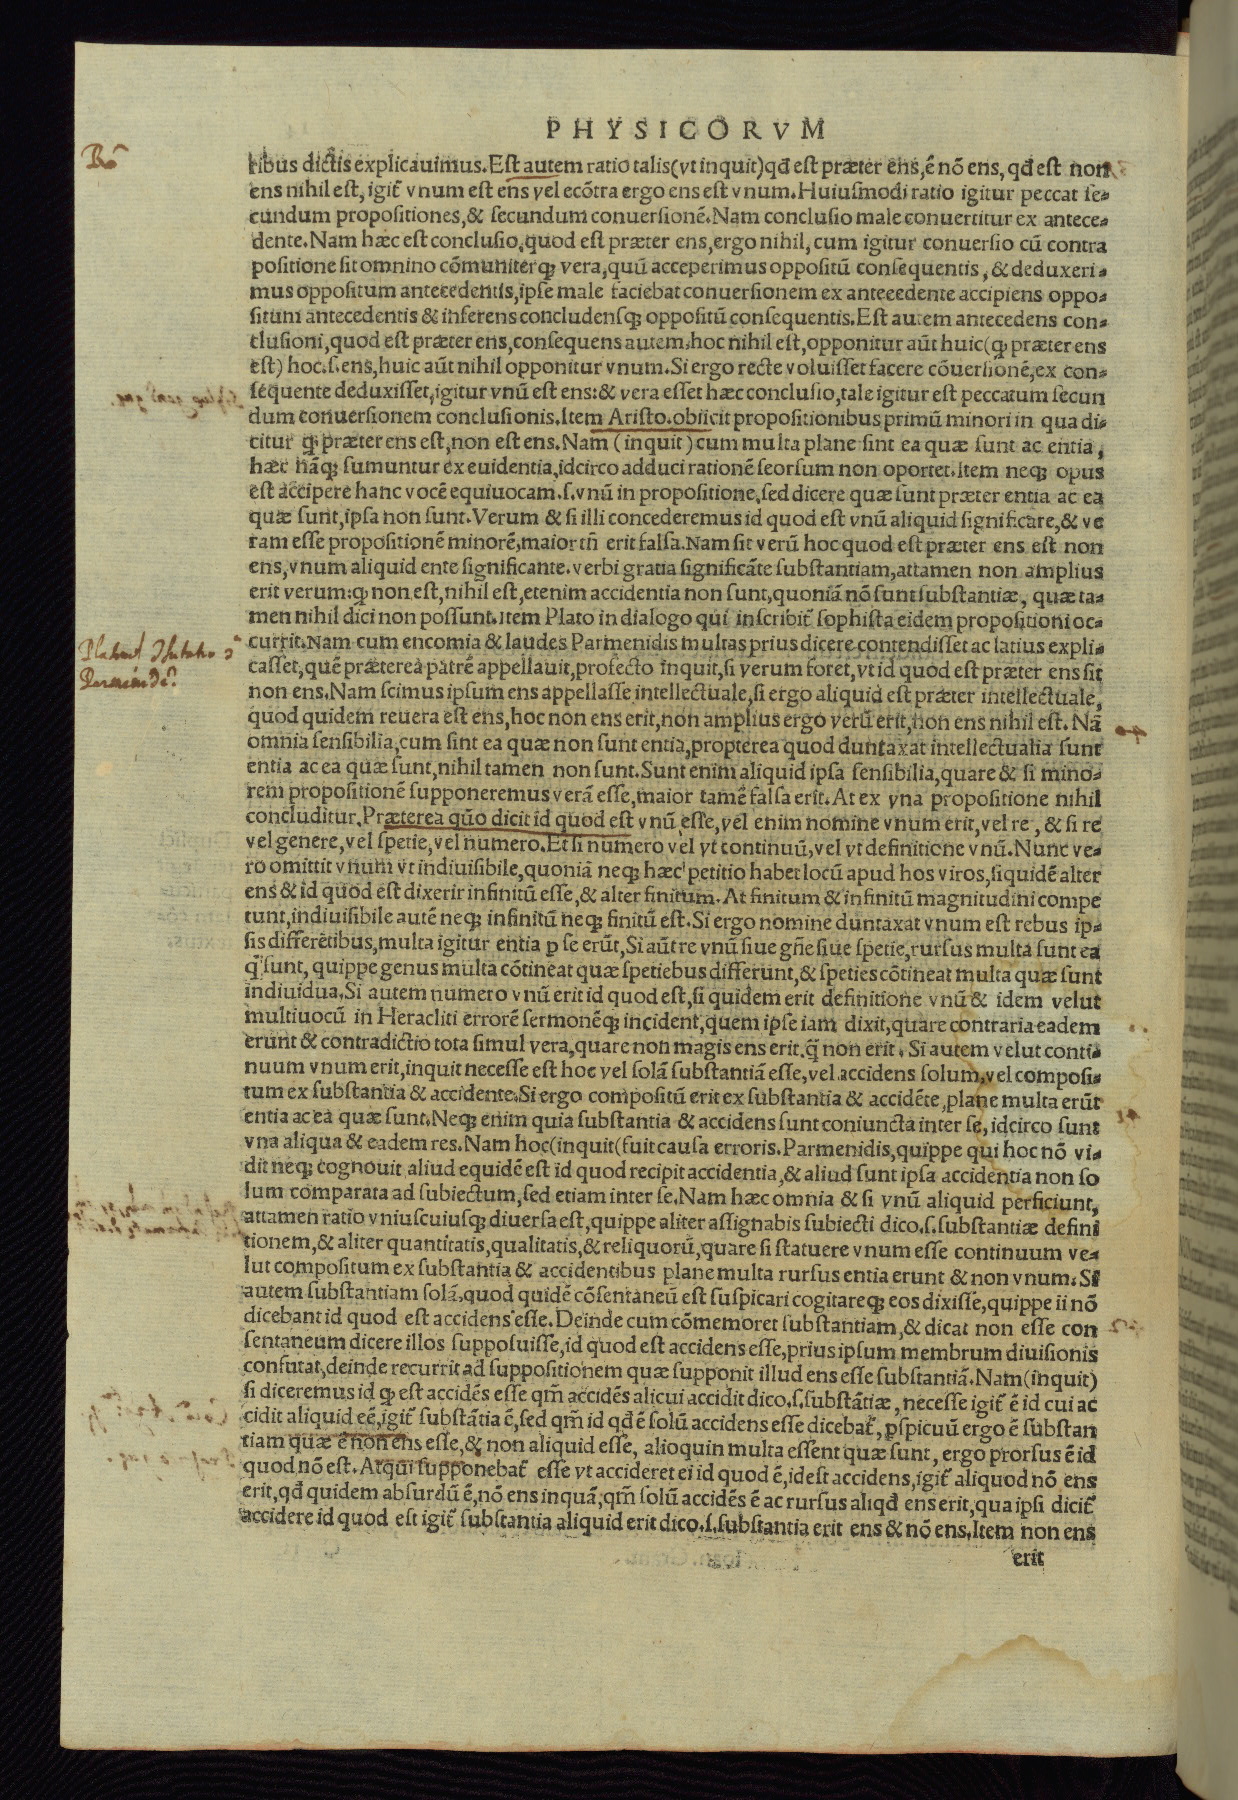 PHYSICORVM
tibus dictis explicauimus. Est autem ratio talis (vt inquit) qđ est præter ens, ē nō ens, qđ est non
ens nihil est, igit̃ vnum est ens vel ecōtra ergo ens est vnum. Huiusmodi ratio igitur peccat se-
cundum propositiones, & secundum conuersionē. Nam conclusio male conuertitur ex antece-
dente. Nam hæc est conclusio, quod est præter ens, ergo nihil, cum igitur conuersio cū contra
positione sit omnino cōmuniterqꝫ vera, quū acceperimus oppositū consequentis, & deduxeri-
mus oppositum antecedentis, ipse male faciebat conuersionem ex antecedente accipiens oppo-
situm antecedentis & inferens concludensqꝫ oppositū consequentis. Est autem antecedens con-
clusioni, quod est præter ens, consequens autem, hoc nihil est, opponitur aūt huic (qꝫ præter ens
est) hoc .s. ens, huic aūt nihil opponitur vnum. Si ergo recte voluisset facere cōuersionē, ex con-
sequente deduxisset, igitur vnū est ens: & vera esset hæc conclusio, tale igitur est peccatum secun
dum conuersionem conclusionis. Item Aristo. obiicit propositionibus primū minori in qua di-
citur qꝫ præter ens est, non est ens. Nam (inquit) cum multa plane sint ea quæ sunt ac entia,
hæc nāqꝫ sumuntur ex euidentia, idcirco adduci rationē seorsum non oportet. Item neqꝫ opus
est accipere hanc vocē equiuocam .s. vnū in propositione, sed dicere quæ sunt præter entia ac ea
quæ sunt, ipsa non sunt. Verum & si illi concederemus id quod est vnū aliquid significare, & ve
ram esse propositionē minorē, maior tñ erit falsa. Nam sit verū hoc quod est præter ens est non
ens, vnum aliquid ente significante. verbi gratia significāte substantiam, attamen non amplius
erit verum: qꝫ non est, nihil est, etenim accidentia non sunt, quoniā nō sunt substantiæ, quæ ta-
men nihil dici non possunt. Item Plato in dialogo qui inscribit̃ sophista eidem propositioni oc-
currit. Nam cum encomia & laudes Parmenidis multas prius dicere contendisset ac latius expli-
casset, quē præterea patrē appellauit, profecto inquit, si verum foret, vt id quod est præter ens sit
non ens. Nam scimus ipsum ens appellasse intellectuale, si ergo aliquid est præter intellectuale,
quod quidem reuera est ens, hoc non ens erit, non amplius ergo verū erit, non ens nihil est. Nā
omnia sensibilia, cum sint ea quæ non sunt entia, propterea quod duntaxat intellectualia sunt
entia ac ea quæ sunt, nihil tamen non sunt. Sunt enim aliquid ipsa sensibilia, quare & si mino-
rem propositionē supponeremus verā esse, maior tamē falsa erit. At ex vna propositione nihil
concluditur. Præterea quō dicit id quod est vnū esse, vel enim nomine vnum erit, vel re, & si re
vel genere, vel spetie, vel numero. Et si numero vel vt continuū, vel vt definitione vnū. Nunc ve-
ro omittit vnum vt indiuisibile, quoniā neqꝫ hæc petitio habet locū apud hos viros, siquidē alter
ens & id quod est dixerir infinitū esse, & alter finitum. At finitum & infinitū magnitudini compe
tunt, indiuisibile autē neqꝫ infinitū neqꝫ finitū est. Si ergo nomine duntaxat vnum est rebus ip-
sis differētibus, multa igitur entia p̱ se erūt, Si aūt re vnū siue gñe siue spetie, rursus multa sunt ea
q̄ sunt, quippe genus multa cōtineat quæ spetiebus differunt, & speties cōtineat multa quæ sunt
indiuidua. Si autem numero vnū erit id quod est, si quidem erit definitione vnū & idem velut
multiuocū in Heracliti errorē sermonēqꝫ incident, quem ipse iam dixit, quare contraria eadem
erunt & contradictio tota simul vera, quare non magis ens erit, q̄ non erit. Si autem velut conti-
nuum vnum erit, inquit necesse est hoc vel solā substantiā esse, vel accidens solum, vel composi-
tum ex substantia & accidente. Si ergo compositū erit ex substantia & accidēte, plane multa erūt
entia ac ea quæ sunt. Neqꝫ enim quia substantia & accidens sunt coniuncta inter se, idcirco sunt
vna aliqua & eadem res. Nam hoc (inquit( fuit causa erroris. Parmenidis, quippe qui hoc nō vi-
dit neqꝫ cognouit aliud equidē est id quod recipit accidentia, & aliud sunt ipsa accidentia non so
lum comparata ad subiectum, sed etiam inter se. Nam hæc omnia & si vnū aliquid perficiunt,
attamen ratio vniuscuiusqꝫ diuersa est, quippe aliter assignabis subiecti dico .s. substantiæ defini
tionem, & aliter quantitatis, qualitatis, & reliquorū, quare si statuere vnum esse continuum ve-
lut compositum ex substantia & accidentibus plane multa rursus entia erunt & non vnum. Si
autem substantiam solā, quod quidē cōsentaneū est suspicari cogitareqꝫ eos dixisse, quippe ii nō
dicebant id quod est accidens esse. Deinde cum cōmemoret substantiam, & dicat non esse con
sentaneum dicere illos supposuisse, id quod est accidens esse, prius ipsum membrum diuisionis
confutat, deinde recurrit ad suppositionem quæ supponit illud ens esse substantiā. Nam (inquit)
si diceremus id qꝫ est accidēs esse qm̄ accidēs alicui accidit dico .s. substātiæ, necesse igit̃ ē id cui ac
cidit aliquid eē, igit̃ substātia ē, sed qm̄ id qđ ē solū accidens esse dicebat̃, p̱spicuū ergo ē substan
tiam quæ ē non ens esse, & non aliquid esse, alioquin multa essent quæ sunt, ergo prorsus ē id
quod nō est. Atqui supponebat̃ esse vt accideret ei id quod ē, idest accidens, igit̃ aliquod nō ens
erit, qđ quidem absurdū ē, nō ens inquā, qm̄ solū accidēs ē ac rursus aliqđ ens erit, qua ipsi dicit̃
accidere id quod est igit̃ substantia aliquid erit dico .s. substantia erit ens & nō ens. Item non ens
erit